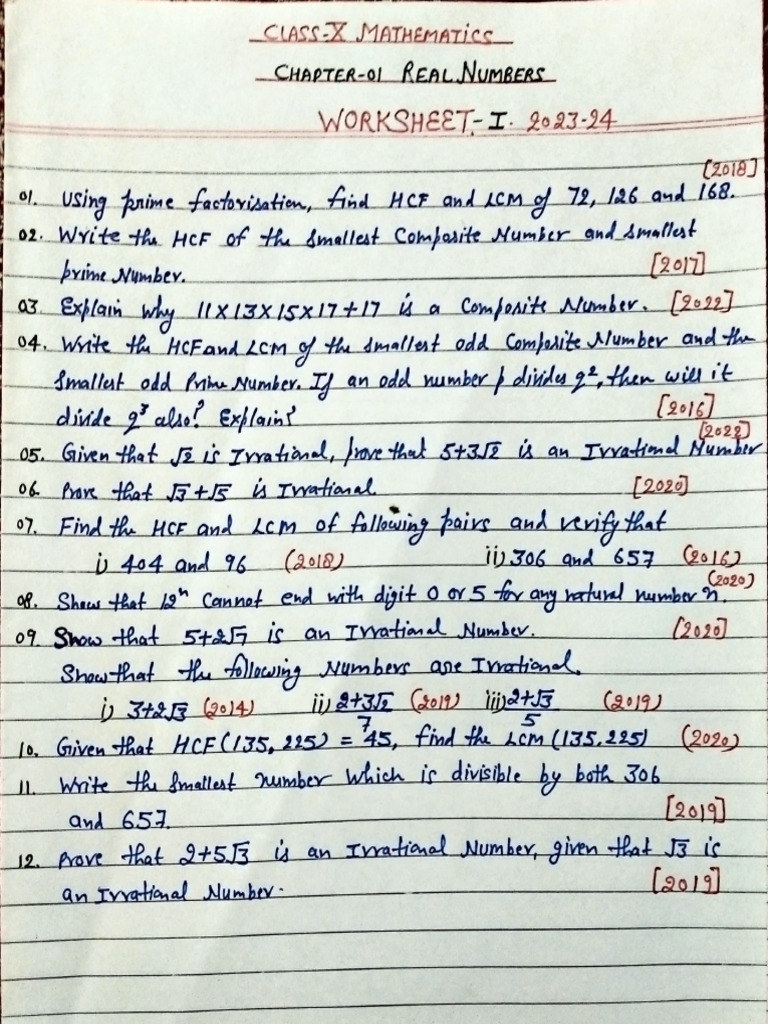 CLASS-X MATHEMATICS
CHAPTER-01 REAL NUMBERS
WORKSHEET-I. 2023-24
[2018]
01. Using prime factorisation, find HCF and LCM of 72, 126 and 168.
02. Write the HCF of the smallest Composite Number and smallest
prime Number. [2017]
03. Explain why 11×13×15×17+17 is a Composite Number. [2022]
04. Write the HCF and LCM of the smallest odd Composite Number and the
smallest odd Prime Number. If an odd number p divides q², then will it
divide q³ also? Explain? [2016]
[2022]
05. Given that √2 is Irrational, prove that 5+3√2 is an Irrational Number
06. Prove that √3+√5 is Irrational. [2020]
07. Find the HCF and LCM of following pairs and verify that
i) 404 and 96 (2018) ii) 306 and 657 (2016)
(2020)
08. Show that 12ⁿ cannot end with digit 0 or 5 for any natural number n.
09. Show that 5+2√7 is an Irrational Number. [2020]
Show that the following Numbers are Irrational.
i) 3+2√3 (2014) ii) 2+3√2/7 (2019) iii) 2+√3/5 (2019)
10. Given that HCF(135, 225) = 45, find the LCM (135, 225) (2020)
11. Write the smallest number which is divisible by both 306
and 657. [2019]
12. Prove that 2+5√3 is an Irrational Number, given that √3 is
an Irrational Number. [2019]